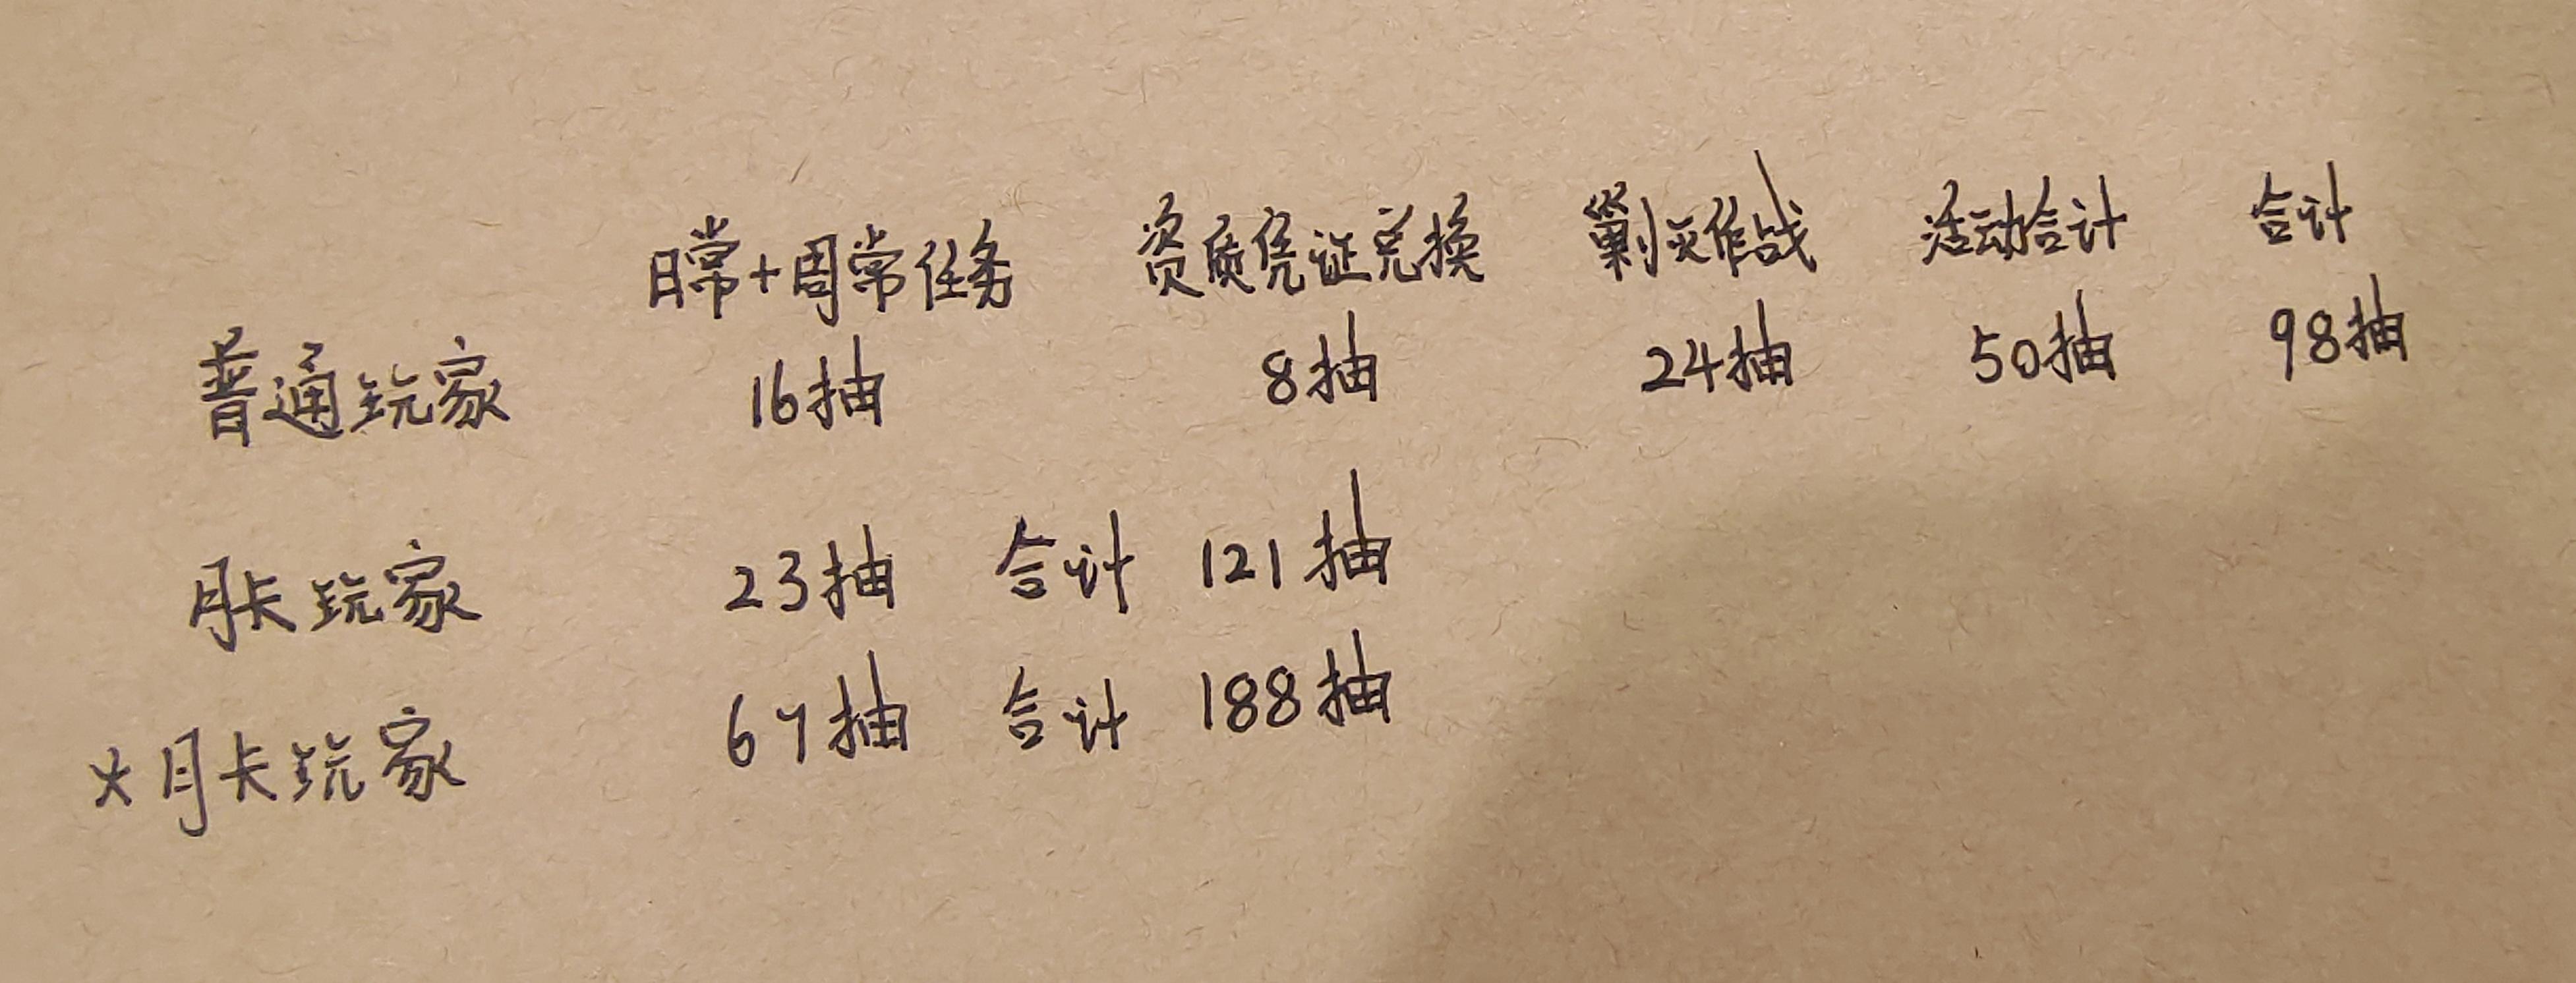 日常+周常任务 资质凭证兑换 剿灭作战 活动合计 合计
普通玩家 16抽 8抽 24抽 50抽 98抽
月卡玩家 23抽 合计 121抽
大月卡玩家 67抽 合计 188抽